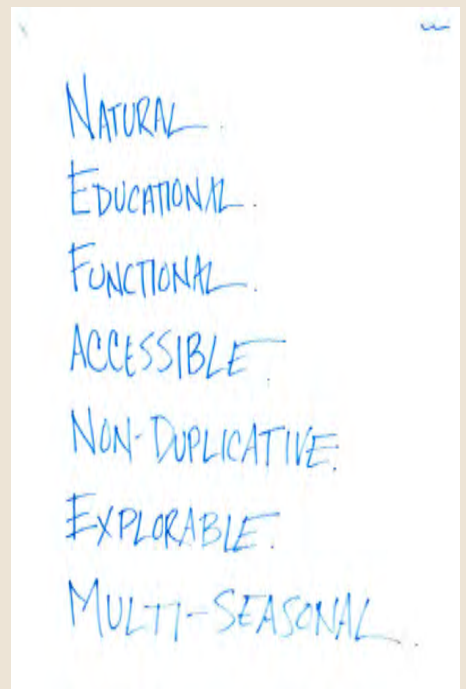 NATURAL.
EDUCATIONAL.
FUNCTIONAL.
ACCESSIBLE.
NON-DUPLICATIVE.
EXPLORABLE.
MULTI-SEASONAL.